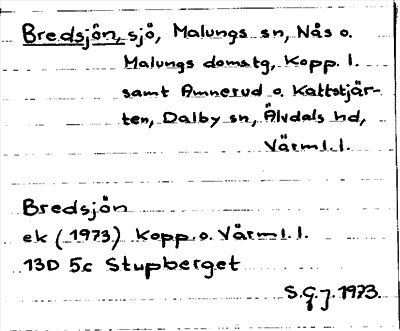 Bredsjön, sjö, Malungs sn, Nås o.
Malungs domstg, Kopp. l.
samt Amnerud o. Kattstjär-
ten, Dalby sn, Älvdals hd,
Värml. l.
Bredsjön
ek (1973) Kopp. o. Värml. l.
13D 5c Stupberget
S.G.J. 1973.